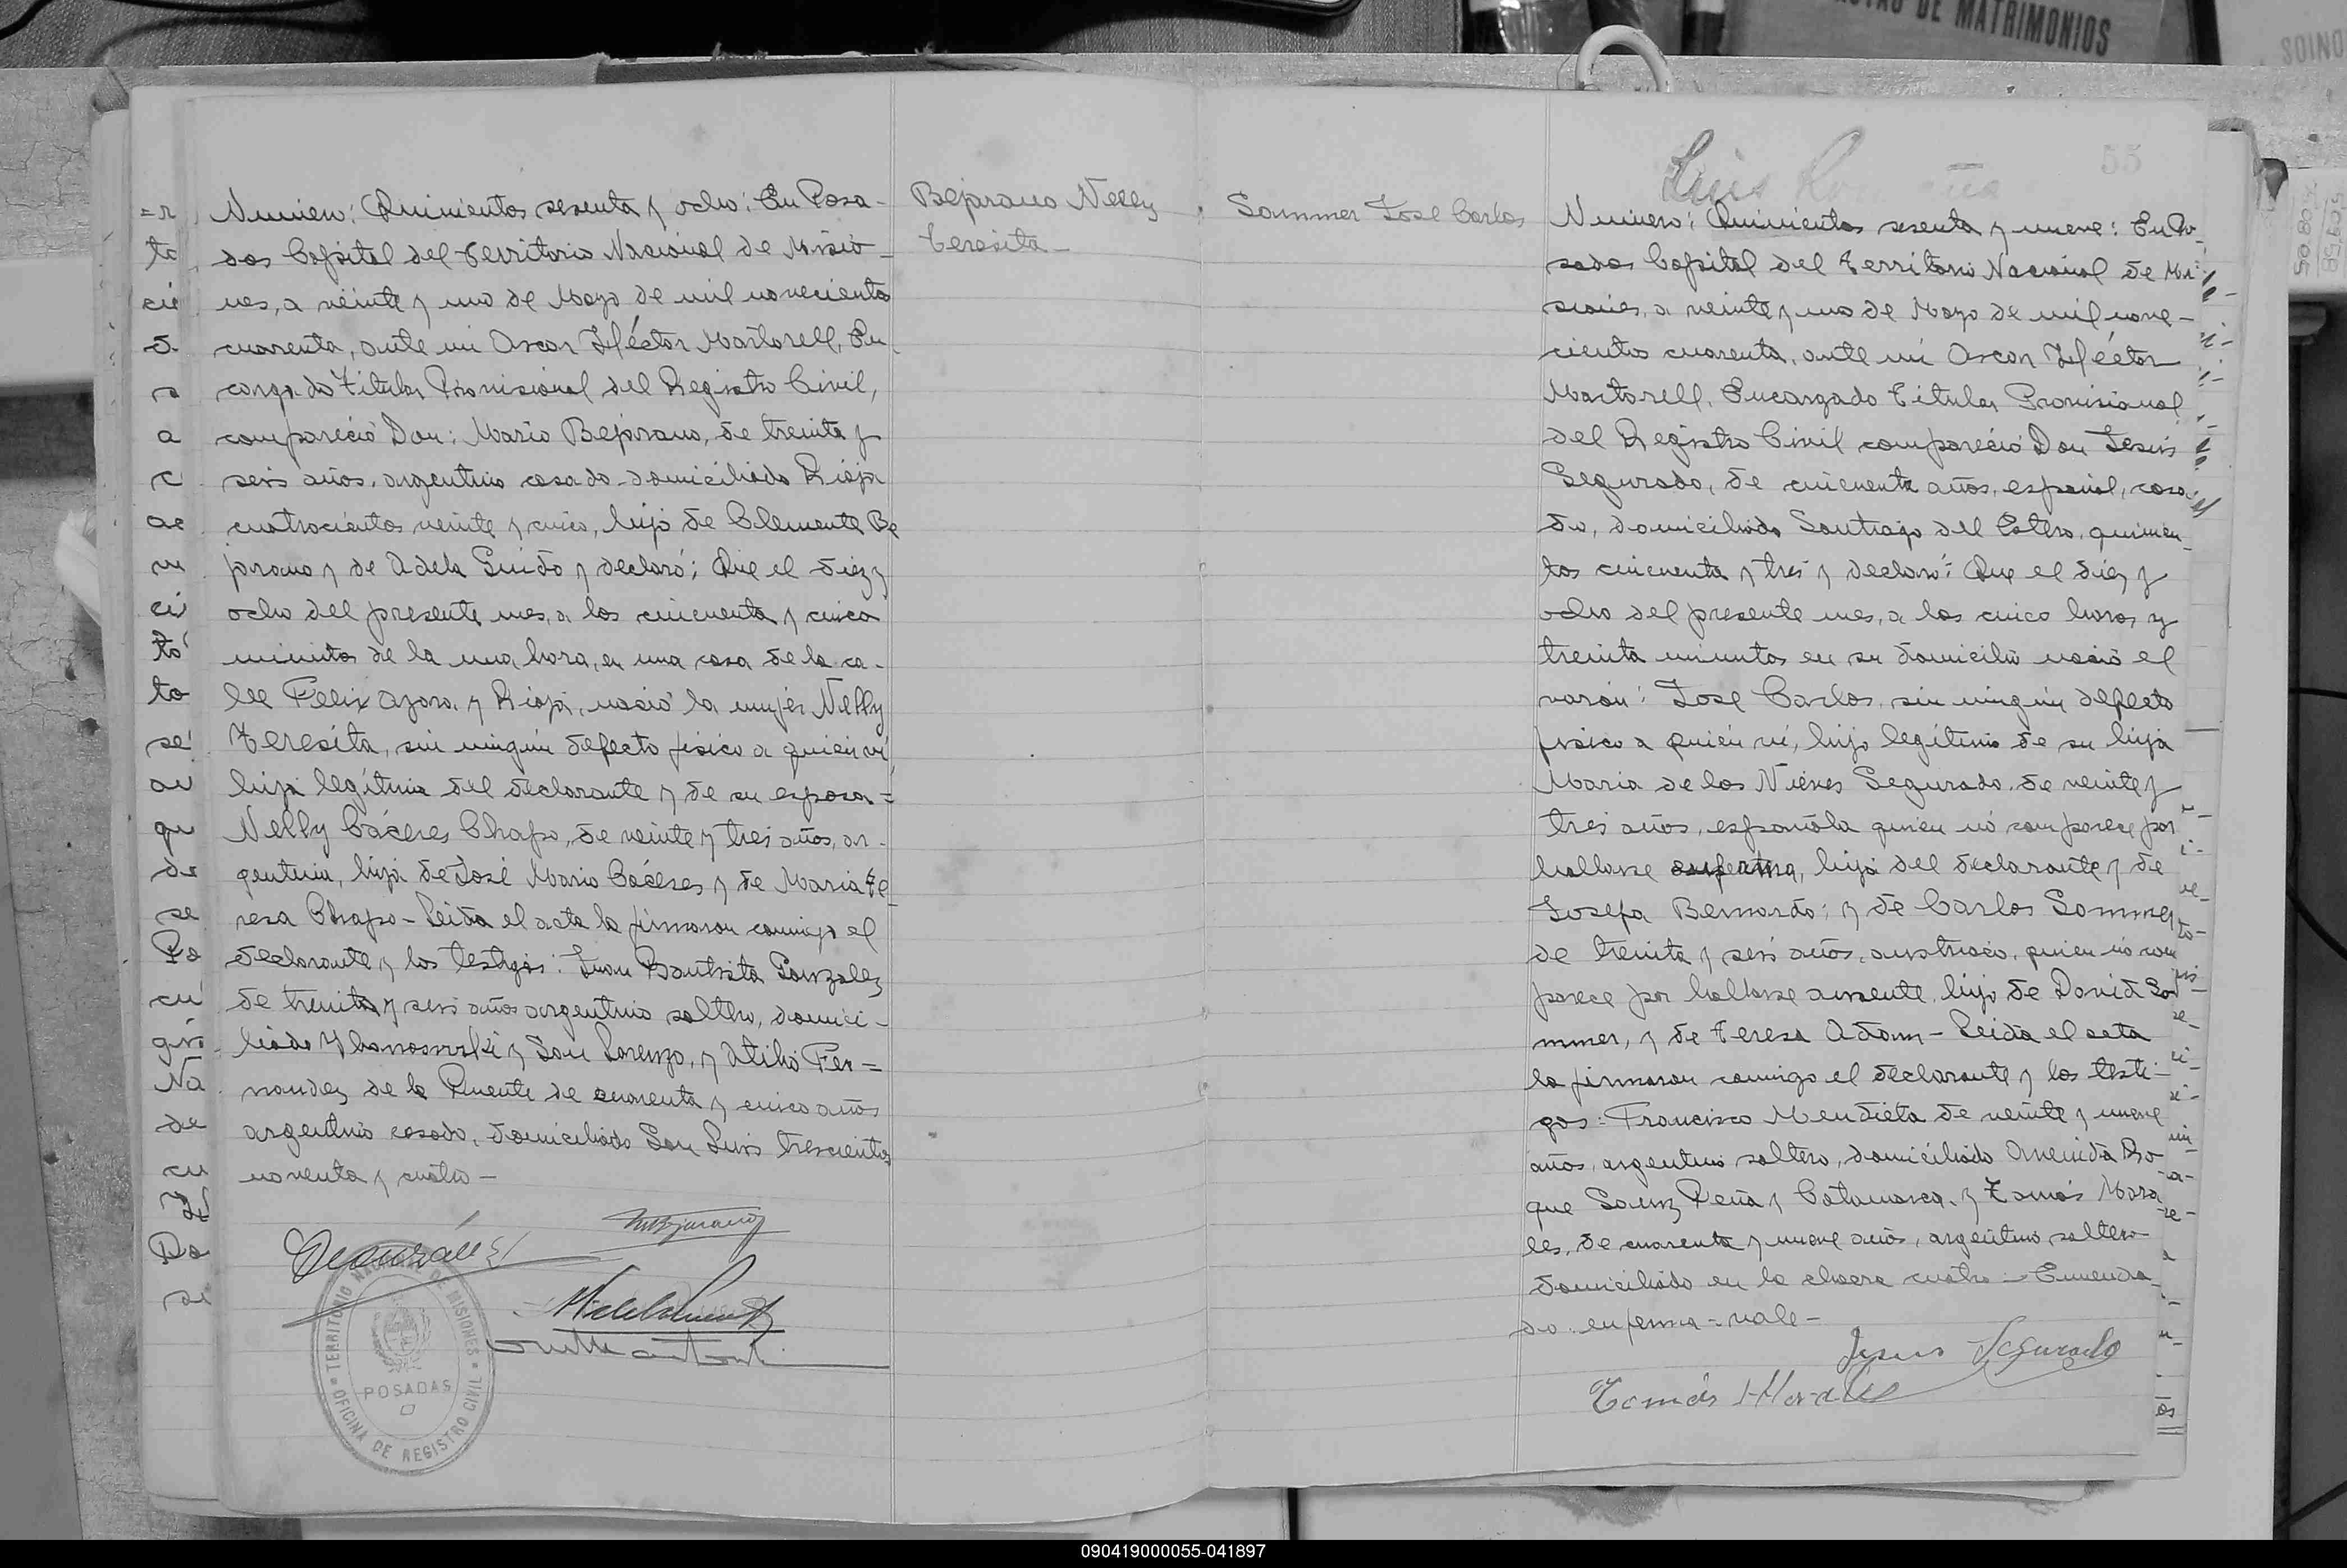 Numero: Quinientos sesenta y ocho: En Posa-
das Capital del Territorio Nacional de Misio-
nes, a veinte y uno de Mayo de mil novecientos
cuarenta, ante mi Oscar Héctor Martorell, En
cargado Titular Provisional del Registro Civil,
compareció Don: Mario Bejarano, de treinta y
seis años, argentino casado domiciliado Rioja
cuatrocientos veinte y cinco, hijo de Clemente Be
jarano y de Adela Guido y declaró: Que el diez y
ocho del presente mes, a los cincuenta y cinco
minutos de la una hora, en una casa de la ca-
lle Felix Azara y Rioja, nació la mujer Nelly
Teresita, sin ningún defecto fisico a quien vi,
hija legítima del declarante y de su esposa=
Nelly Cáceres Chapo, de veinte y tres años, ar-
gentina, hija de José Mario Cáceres y de Maria Te-
resa Chapo- Leida el acta la firmaron conmigo el
declarante y los testigos: Juan Bautista González
de treinta y seis años argentino soltero, domici-
liado y San Lorenzo, y Atilio Fer=
nandez de la Puente de cuarenta y cinco años
argentino casado, domiciliado San Luis trescientos
noventa y cuatro-
TERRITORIO NACIONAL DE MISIONES
POSADAS
OFICINA DE REGISTRO CIVIL
Bejarano Nelly
Teresita-
Sommer José Carlos
Luis
55
Numero: Quinientos sesenta y nueve: En Po-
sadas Capital del Territorio Nacional de Mi-
siones, a veinte y uno de Mayo de mil nove-
cientos cuarenta, ante mi Oscar Héctor
Martorell, Encargado Titular Provisional
del Registro Civil compareció Don Jesús
Segurado, de cincuenta años, español, casa-
do, domiciliado Santiago del Estero, quinien-
tos cincuenta y tres y declaró: Que el diez y
ocho del presente mes, a las cinco horas y
treinta minutos en su domicilio nació el
varón: José Carlos, sin ningún defecto
fisico a quien vi, hijo legítimo de su hija
Maria de los Nieves Segurado de veinte y
tres años, española quien no comparece por
hallarse enferma, hija del declarante y de
Josefa Bernardo; y de Carlos Sommer
de treinta y seis años, austriaco, quien no com
parece por hallarse ausente, hijo de David So
mmer, y de Teresa Adam- Leida el acta
la firmaron conmigo el declarante y los testi-
gos: Francisco Mendieta de veinte y nueve
años, argentino soltero, domiciliado Avenida Ro-
que Saenz Peña y Catamarca, y Tomás Mora
les, de cuarenta y nueve años, argentino soltero
domiciliado en la chacra cuatro- Enmenda-
do: enferma- vale-
Jesus Segurado
Tomás Morales
DE MATRIMONIOS
090419000055-041897